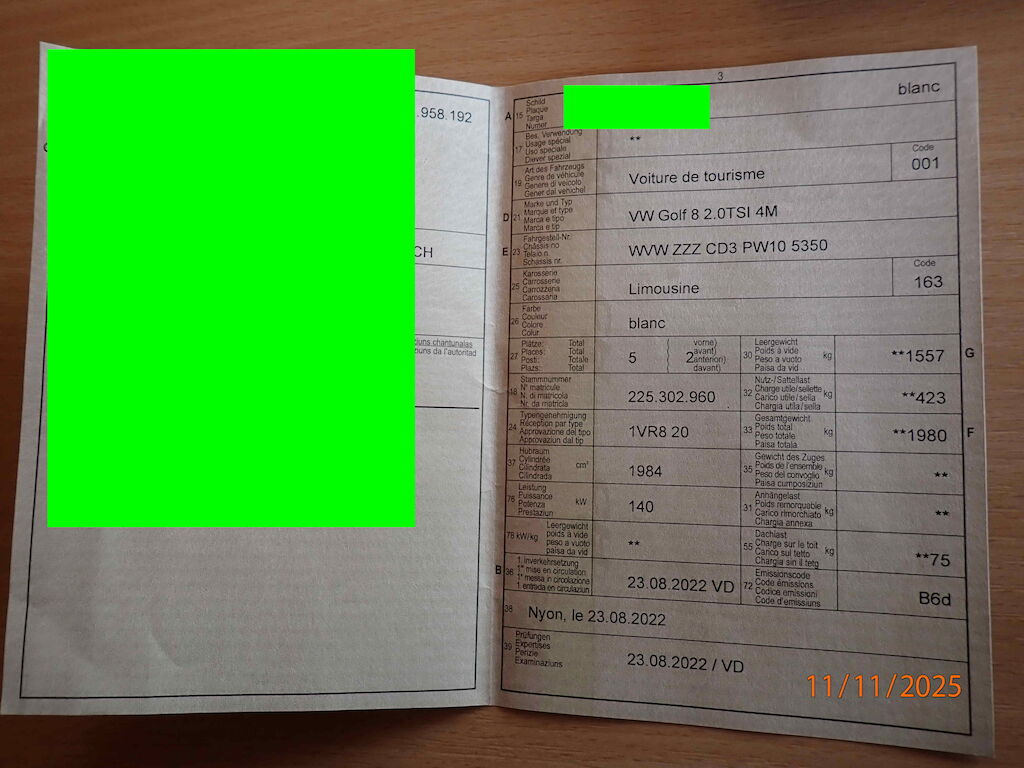 .958.192
CH
uns chantunals
uns da l'autoritad
3
A 15 Schild
Plaque
Targa
Numer
blanc
17 Bes. Verwendung
Usage spécial
Uso speciale
Diever spezial
**
19 Art des Fahrzeugs
Genre de véhicule
Genere di veicolo
Gener dal vehichel
Voiture de tourisme
Code
001
D 21 Marke und Typ
Marque et type
Marca e tipo
Marca e tip
VW Golf 8 2.0TSI 4M
E 23 Fahrgestell-Nr.
Châssis no
Telaio n.
Schassis nr.
WVW ZZZ CD3 PW10 5350
25 Karosserie
Carrosserie
Carrozzeria
Carossaria
Limousine
Code
163
26 Farbe
Couleur
Colore
Colur
blanc
27 Plätze: Total
Places: Total
Posti: Totale
Plazs: Total
5
( vorne)
( 2 avant)
( anteriori)
( davant)
30 Leergewicht
Poids à vide
Peso a vuoto
Paisa da vid
kg
**1557 G
18 Stammnummer
N° matricule
N. di matricola
Nr. da matricla
225.302.960
32 Nutz-/Sattellast
Charge utile/sellette
Carico utile/sella
Chargia utila/sella
kg
**423
24 Typengenehmigung
Réception par type
Approvazione del tipo
Approvaziun dal tip
1VR8 20
33 Gesamtgewicht
Poids total
Peso totale
Paisa totala
kg
**1980 F
37 Hubraum
Cylindrée
Cilindrata
Cilindrada
cm³
1984
35 Gewicht des Zuges
Poids de l'ensemble
Peso del convoglio
Paisa cumposiziun
kg
**
76 Leistung
Puissance
Potenza
Prestaziun
kW
140
31 Anhängelast
Poids remorquable
Carico rimorchiato
Chargia annexa
kg
**
78 kW/kg Leergewicht
poids à vide
peso a vuoto
paisa da vid
**
55 Dachlast
Charge sur le toit
Carico sul tetto
Chargia sin il tetg
kg
**75
B 36 1. Inverkehrsetzung
1re mise en circulation
1a messa in circolazione
1. entrada en circulaziun
23.08.2022 VD
72 Emissionscode
Code émissions
Codice emissioni
Code d'emissiuns
B6d
38 Nyon, le 23.08.2022
39 Prüfungen
Expertises
Perizie
Examinaziuns
23.08.2022 / VD
11/11/2025